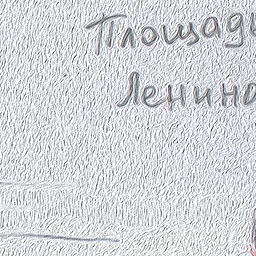 Площадь
Ленина